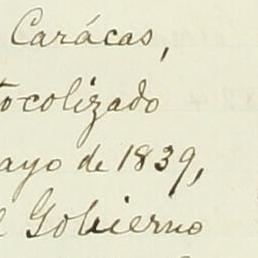 Carácas,
tocolizado
ayo de 1839,
l Gobierno